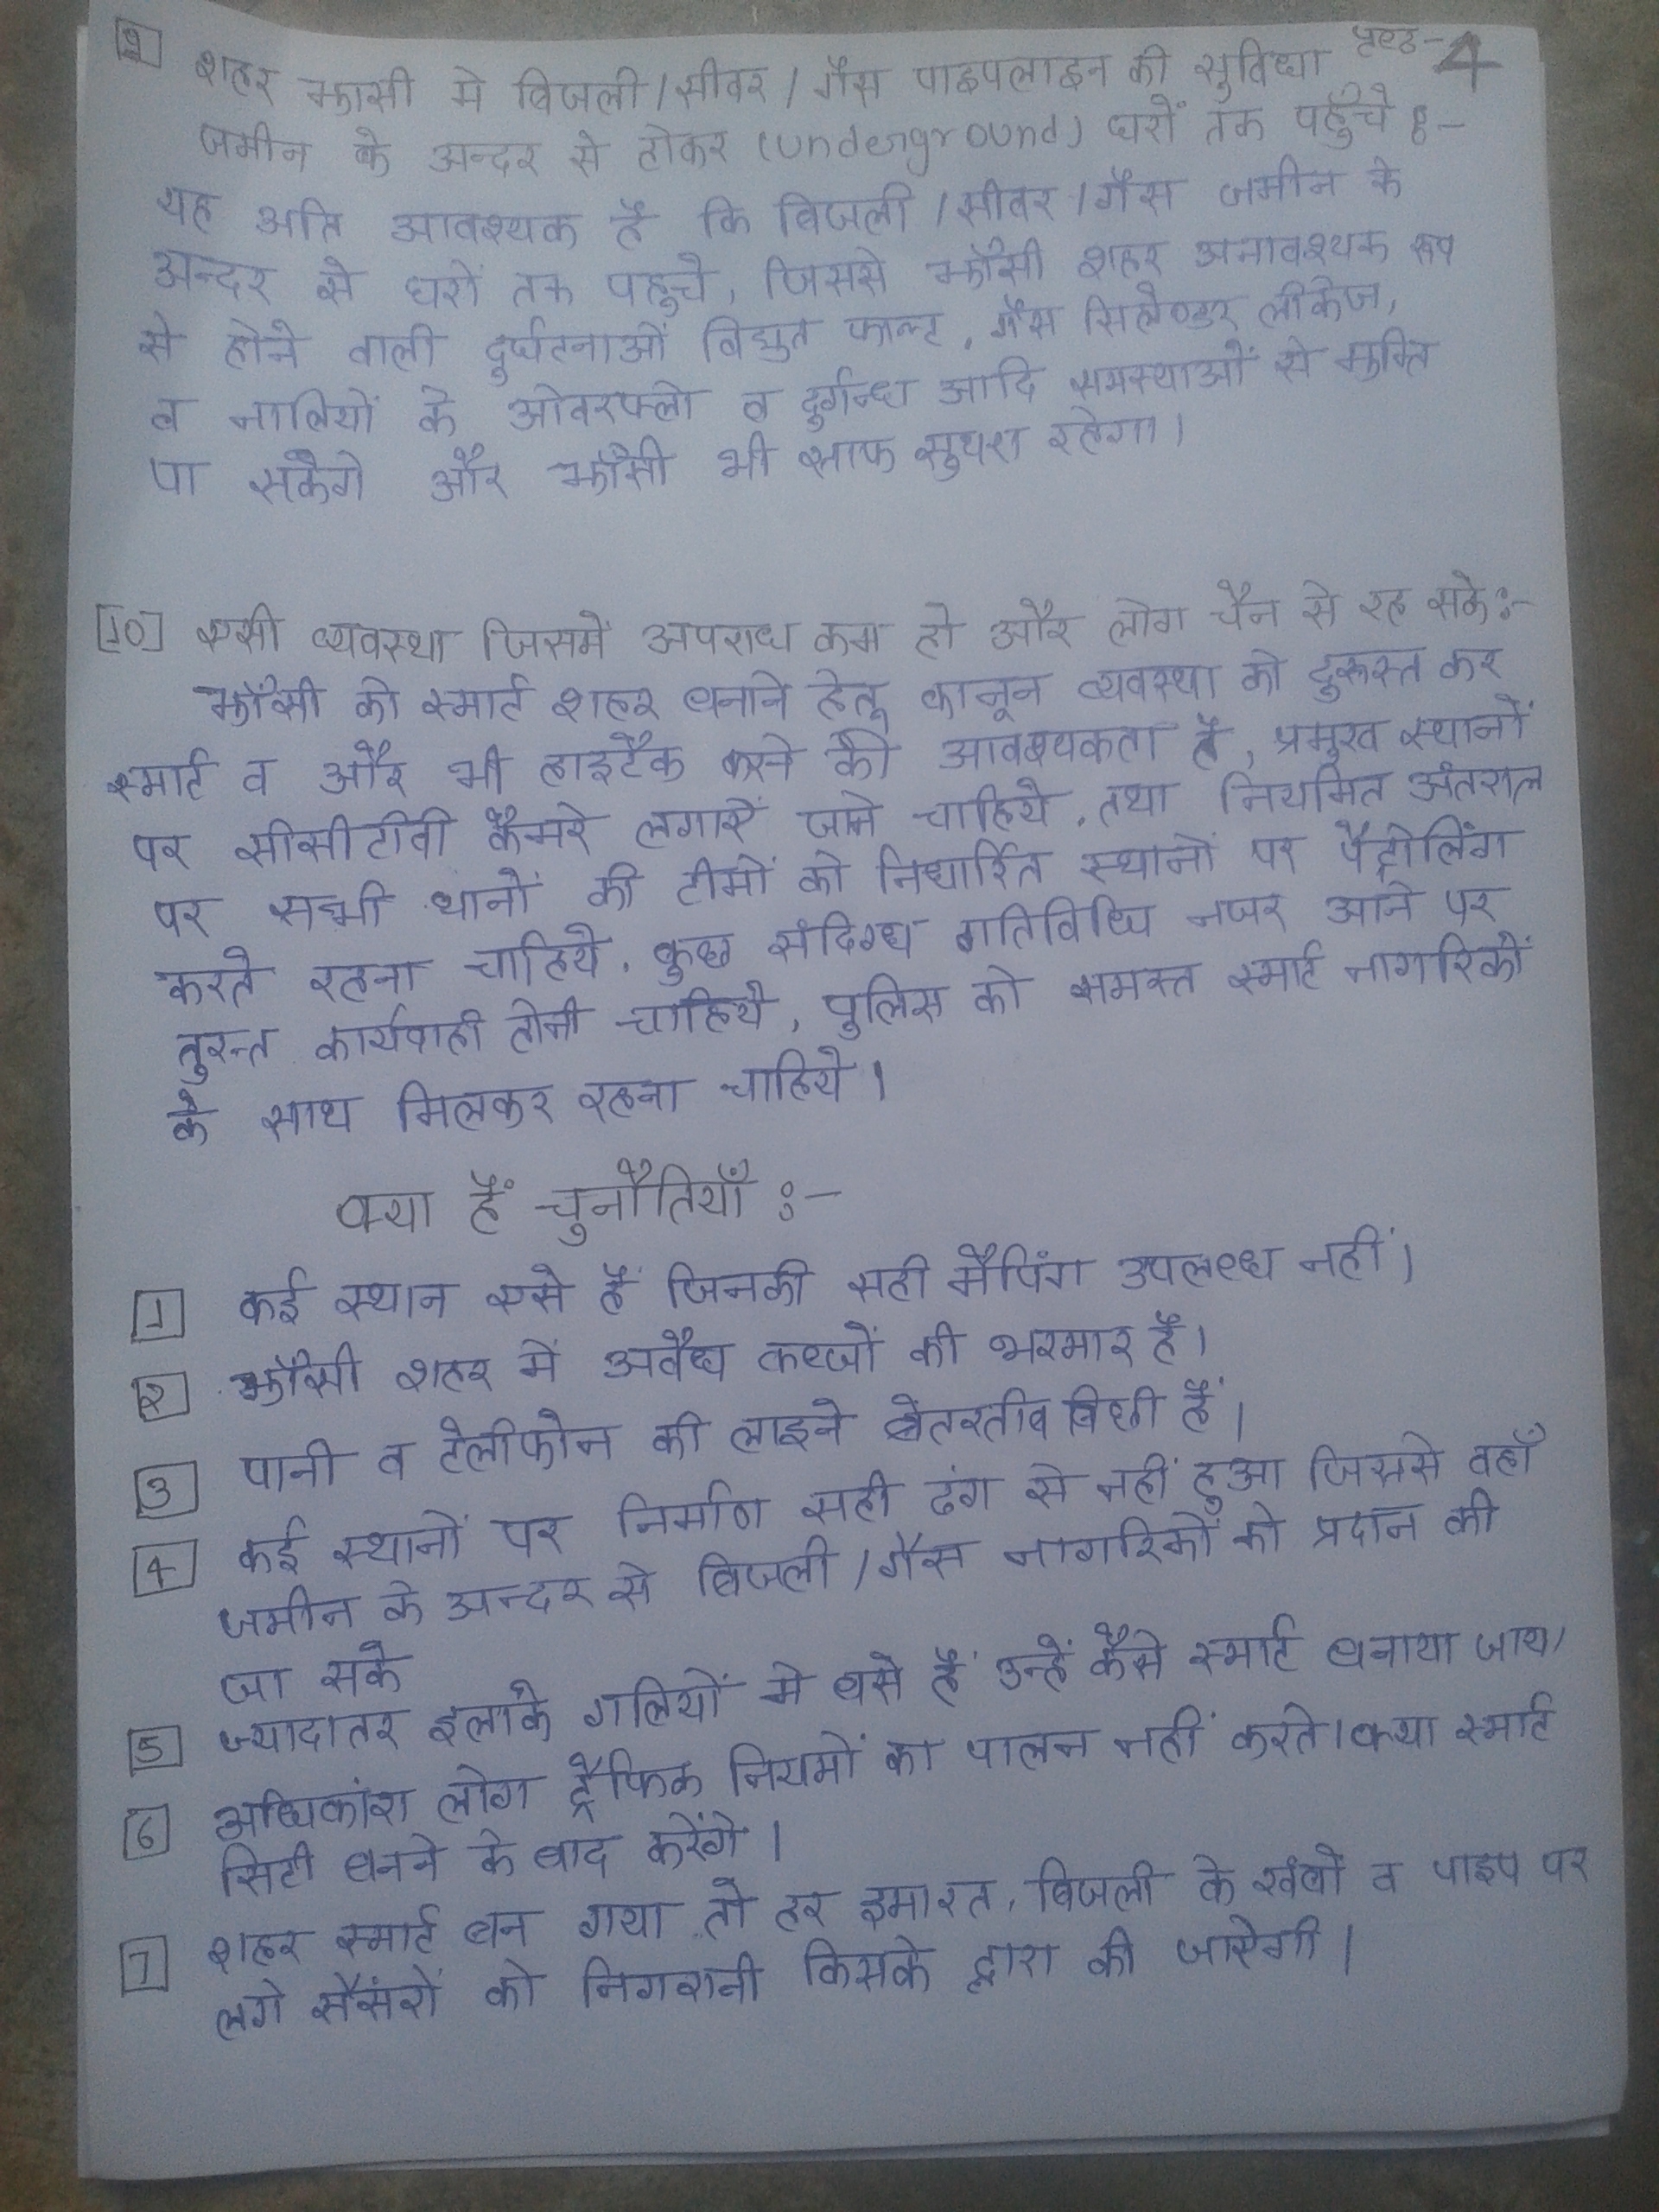 पृष्ठ-4
[9] शहर झासी मे बिजली/सीवर/गैस पाइपलाइन की सुविधा
जमीन के अन्दर से होकर (underground) घरों तक पहुँचे :-
यह अति आवश्यक है कि बिजली/सीवर/गैस जमीन के
अन्दर से घरों तक पहुचे, जिससे झाँसी शहर अनावश्यक रूप
से होने वाली दुर्घटनाओं विद्युत फाल्ट, गैस सिलेण्डर लीकेज,
व नालियों के ओवरफ्लो व दुर्गन्ध आदि समस्याओं से मुक्ति
पा सकेंगे और झाँसी भी साफ सुथरा रहेगा।
[10] एसी व्यवस्था जिसमें अपराध कम हो और लोग चैन से रह सके :-
झाँसी को स्मार्ट शहर बनाने हेतू कानून व्यवस्था को दुरूस्त कर
स्मार्ट व और भी हाइटैक करने की आवश्यकता है, प्रमुख स्थानों
पर सीसीटीवी कैमरे लगाऐं जाने चाहिये, तथा नियमित अंतराल
पर सभी थानों की टीमों को निधार्रित स्थानों पर पैट्रोलिंग
करते रहना चाहिये, कुछ संदिग्ध गतिविधि नजर आने पर
तुरन्त कार्यवाही होनी चाहिये, पुलिस को समस्त स्मार्ट नागरिकों
के साथ मिलकर रहना चाहिये।
क्या हैं चुनौतियाँ :-
[1] कई स्थान एसे हैं जिनकी सही मैपिंग उपलब्ध नहीं।
[2] झाँसी शहर में अवैध कब्जों की भरमार है।
[3] पानी व टेलीफोन की लाइने बेतरतीब बिछी हैं।
[4] कई स्थानों पर निर्माण सही ढंग से नहीं हुआ जिससे वहाँ
जमीन के अन्दर से बिजली/गैस नागरिकों को प्रदान की
जा सके
[5] ज्यादातर इलाके गलियों मे बसे हैं उन्हें कैसे स्मार्ट बनाया जाय।
[6] अधिकांश लोग ट्रैफिक नियमों का पालन नहीं करते। क्या स्मार्ट
सिटी बनने के बाद करेंगे।
[7] शहर स्मार्ट बन गया तो हर इमारत, बिजली के खंबों व पाइप पर
लगे सैंसरों की निगरानी किसके द्वारा की जाऐगी।